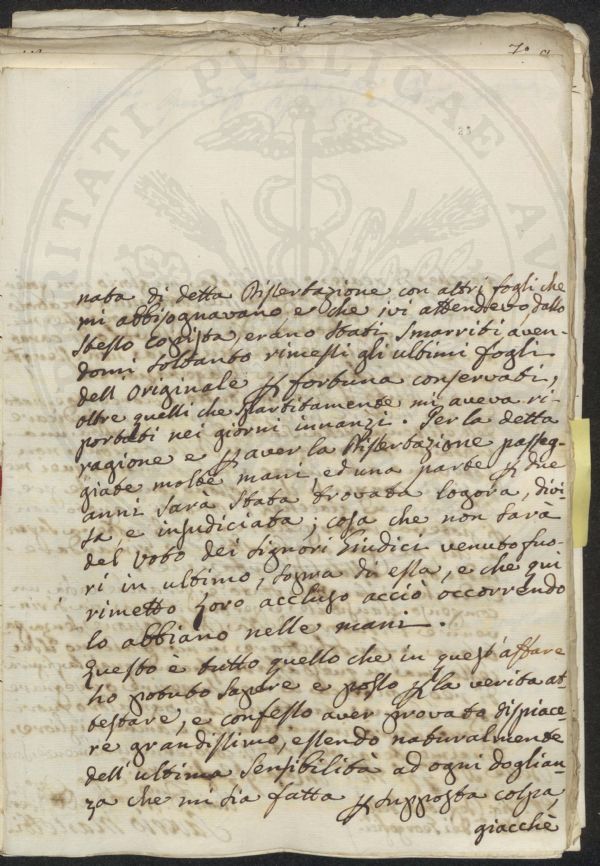 23
nata di detta Dissertazione con altri fogli che
mi abbisognavano e che ivi attendevo dallo
stesso Copista, erano stati smarriti aven-
domi soltanto rimessi gli ultimi fogli
dell'Originale p fortuna conservati,
oltre quelli che spartitamente mi aveva ri-
portati nei giorni innanzi. Per la detta
ragione e p aver la Dissertazione passeg-
giate molte mani, ed una parte p due
anni sarà stata trovata logora, divi-
sa, e insudiciata; cosa che non sarà
del voto dei Signori Giudici venuto fuo-
ri in ultimo, sopra di essa, e che qui
rimetto Loro accluso acciò occorrendo
lo abbiano nelle mani.
Questo è tutto quello che in quest'affare
ho potuto sapere e posso p la verità at-
testare, e confesso aver provata dispiace-
re grandissimo, essendo naturalmente
dell'ultima sensibilità ad ogni doglian-
za che mi sia fatta p supposta colpa,
giacchè